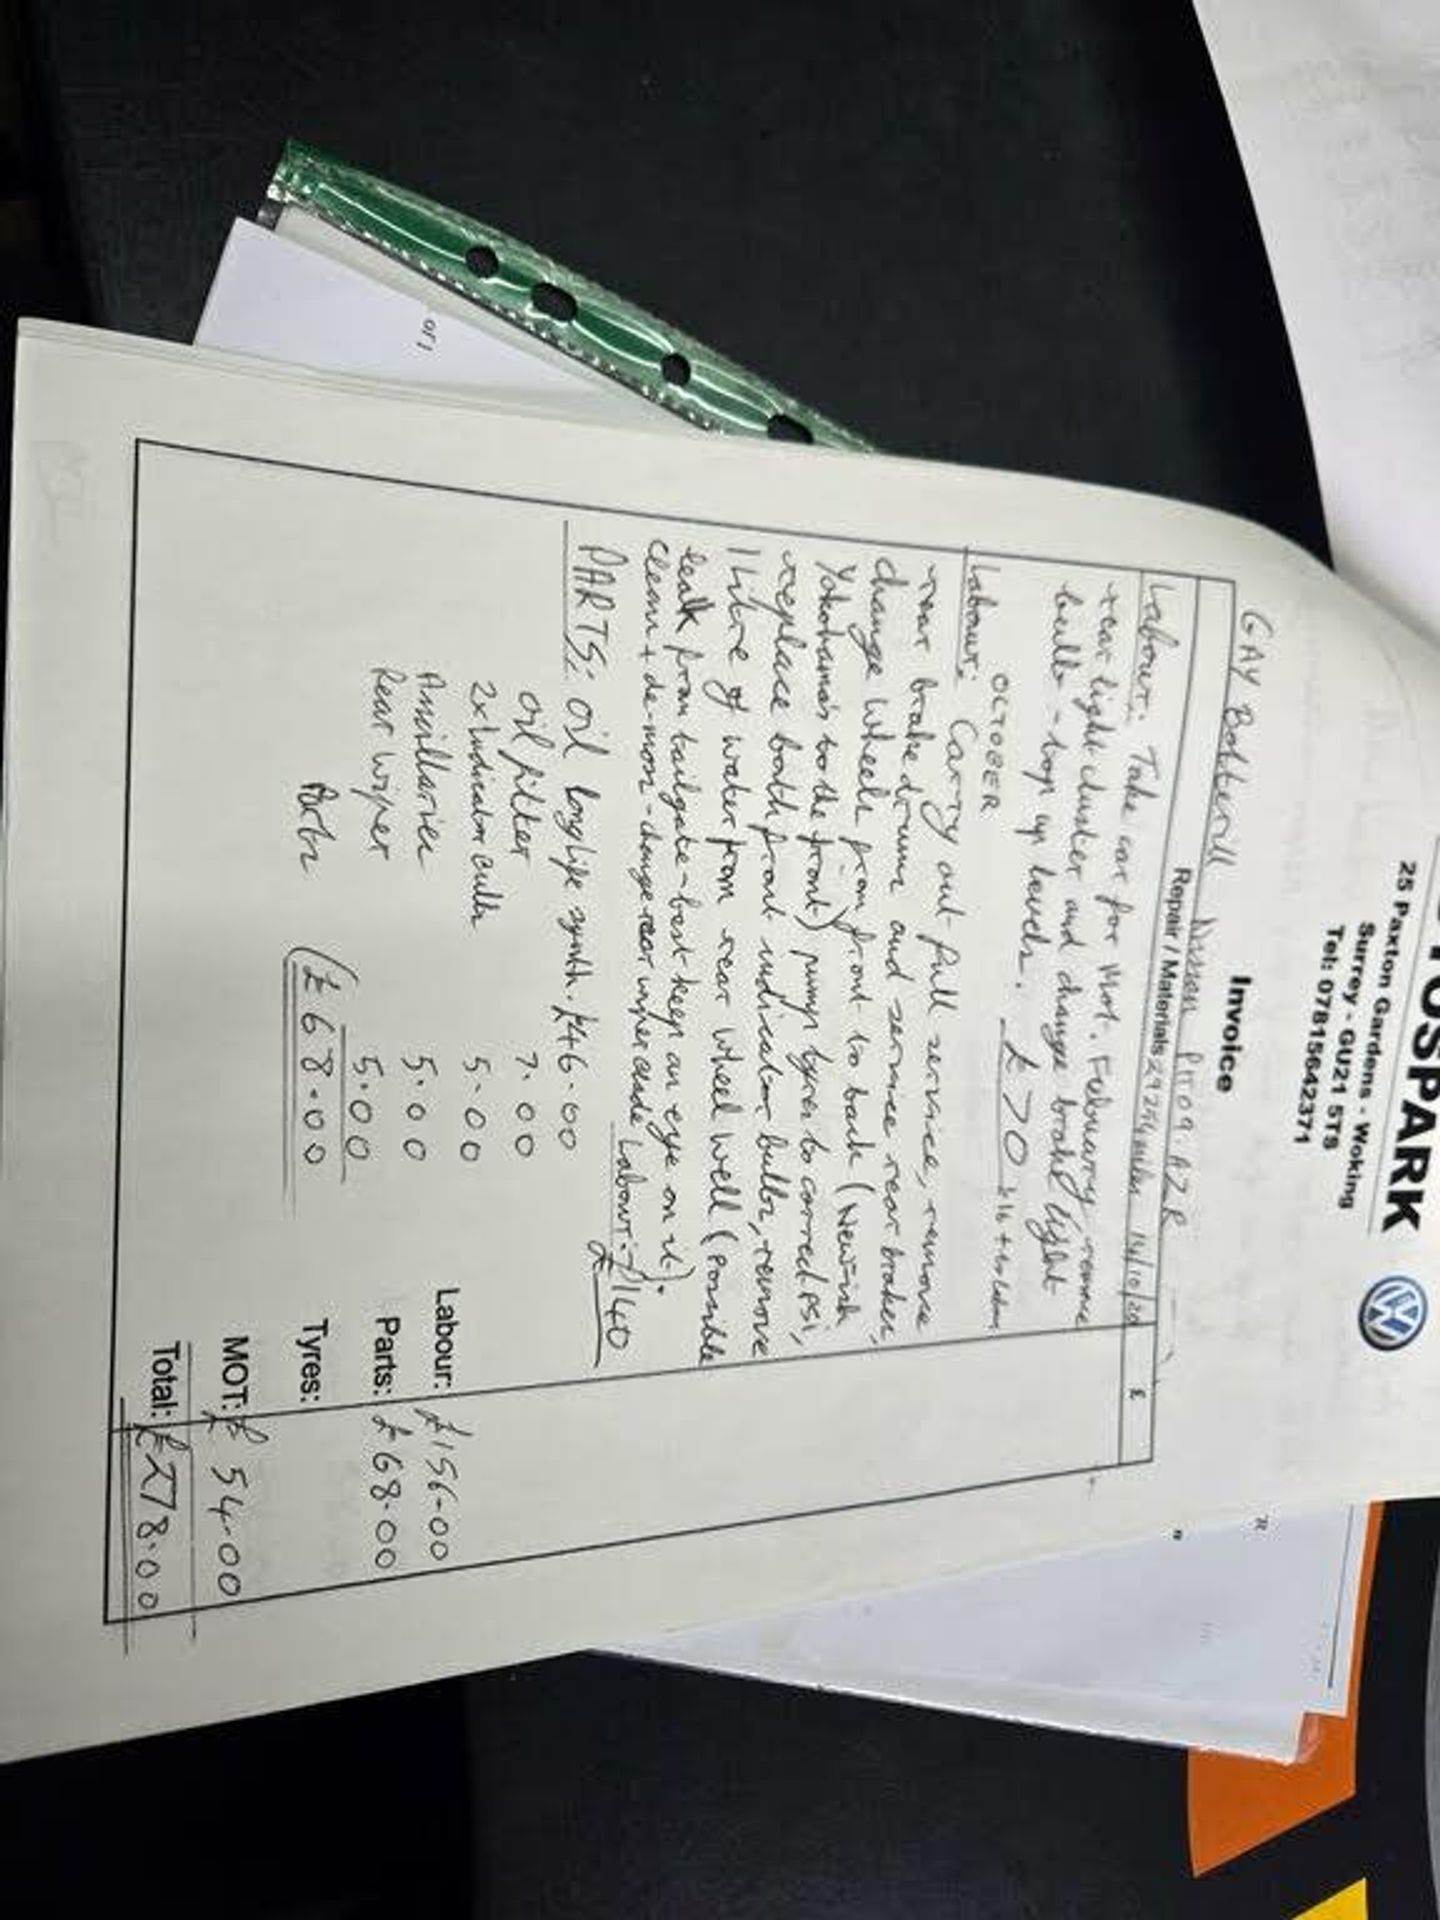 TOSPARK
25 Paxton Gardens - Woking
Surrey - GU21 5TS
Tel: 07815642371
Invoice
GAY Botterill Nissan PJ09 AZR
Repair / Materials 29254 miles 14/10/20 £
Labour: Take car for Mot. February remove
rear light cluster and change brake light
bulb - top up levels. £70 £16 +
OCTOBER
Labour: Carry out full service, remove
rear brake drums and service rear brakes,
change wheels from front to back (Newish
Yokohama's to the front) pump tyres to correct PSI,
replace both front indicator bulbs, remove
1 Litre of water from rear wheel well (Possible
leak from tailgate - best keep an eye on it).
clean + de-mos - change rear wiper blade Labour: £140
PARTS: Oil longlife synth. £46.00
oil filter 7.00
2x Indicator bulbs 5.00
Ancillaries 5.00
Rear wiper 5.00
Parts £68.00
Labour: £156-00
Parts: £68.00
Tyres:
MOT: £54.00
Total: £278.00
or,